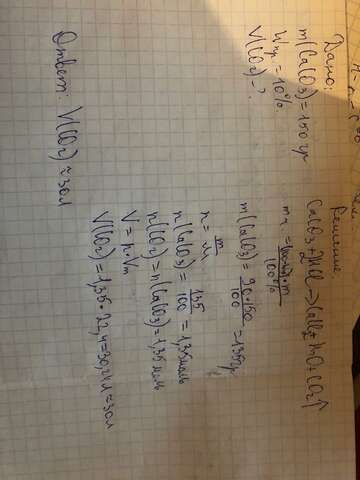 Дано:
m(CaCO3) = 150 гр
Wпр = 10%
V(CO2) - ?
Решение
CaCO3 + 2HCl → CaCl2 + H2O + CO2↑
m(CaCO3) = 90·150 / 100 = 135 гр
n = m / M
n(CaCO3) = 135 / 100 = 1,35 моль
n(CO2) = n(CaCO3) = 1,35 моль
V = n·Vm
V(CO2) = 1,35·22,4 = 30,24 л ≈ 30 л
Ответ: V(CO2) ≈ 30 л